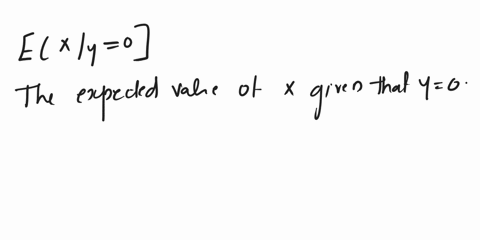 E( x / y = 0 ]
The expected value of x given that y = 0.